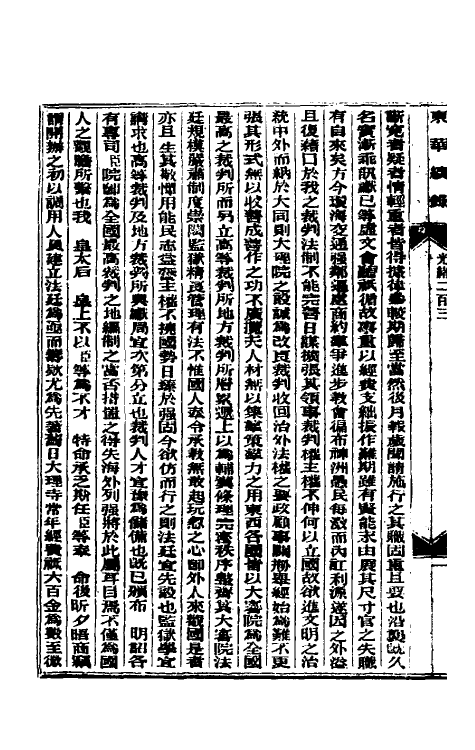 東華續錄　光緒二百三
斷究者疑者情輕重者皆得據律參較期歸至當然後月報歲聞請施行之其職固重且要也沿襲既久
名實漸乖馴獻已等虛文會讞祇循故事重以經費支絀振作難期雖有賢能末由展其尺寸官之失職
有自來矣方今環海交通強鄰逼處商約爭進步教會徧布神洲愚民每激而內訌利源遂因之外溢
且復藉口於我之裁判法制不能完善日謀擴張其領事裁判權主權不伸何以立國故欲進文明之治
統中外而納於大同則大理院之設誠為改良裁判收回治外法權之要政顧事關剏舉經始為難不更
張其形式無以收善成善作之功不廣攬夫人材無以集羣策羣力之用東西各國皆以大審院為全國
最高之裁判所而另立高等裁判所地方裁判所層累遞上以為輔翼條理完密秩序整齊其大審院法
廷規模嚴肅制度崇閎監獄精良管理有法不惟國人奉令承教無敢起玩忽之心即外人來觀國是者
亦且生其敬憚用能民志益張主權不撓國勢日臻於强固今欲仿而行之則法廷宜先設也監獄學宜
講求也高等裁判及地方裁判所與讞局宜次第分立也裁判人才宜豫為儲備也既已頒布　明詔各
有專司臣院即為全國最高裁判之地編制之當否措置之得失海外列强將於此屬耳目焉不僅為國
人之觀瞻所繫也我　皇太后　皇上不以臣等為不才　特命承乏斯任臣等奉　命後昕夕晤商竊
謂開辦之初以調用人員建立法廷為亟而籌款尤為先著舊日大理寺常年經費祇六百金為數至微